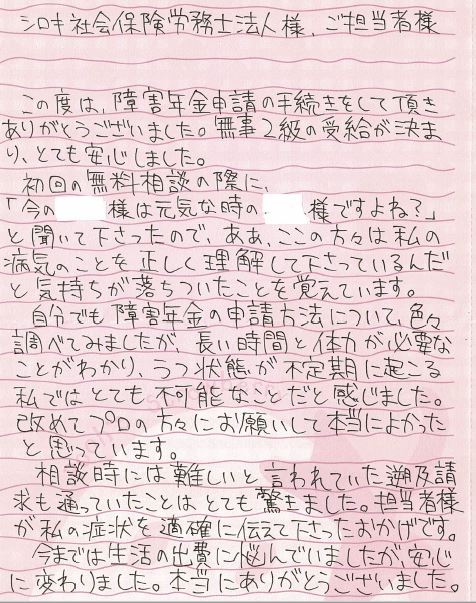 シロキ社会保険労務士法人様、ご担当者様
この度は、障害年金申請の手続きをして頂き
ありがとうございました。無事2級の受給が決ま
り、とても安心しました。
初回の無料相談の際に、
「今の 様は元気な時の 様ですよね?」
と聞いて下さったので、ああ、ここの方々は私の
病気のことを正しく理解して下さっているんだ
と気持ちが落ちついたことを覚えています。
自分でも障害年金の申請方法について、色々
調べてみましたが、長い時間と体力が必要な
ことがわかり、うつ状態が不定期に起こる
私ではとても不可能なことだと感じました。
改めてプロの方々にお願いして本当によかった
と思っています。
相談時には難しいと言われていた遡及請
求も通っていたことはとても驚きました。担当者様
が私の症状を適確に伝えて下さったおかげです。
今までは生活の出費に悩んでいましたが、安心
に変わりました。本当にありがとうございました。